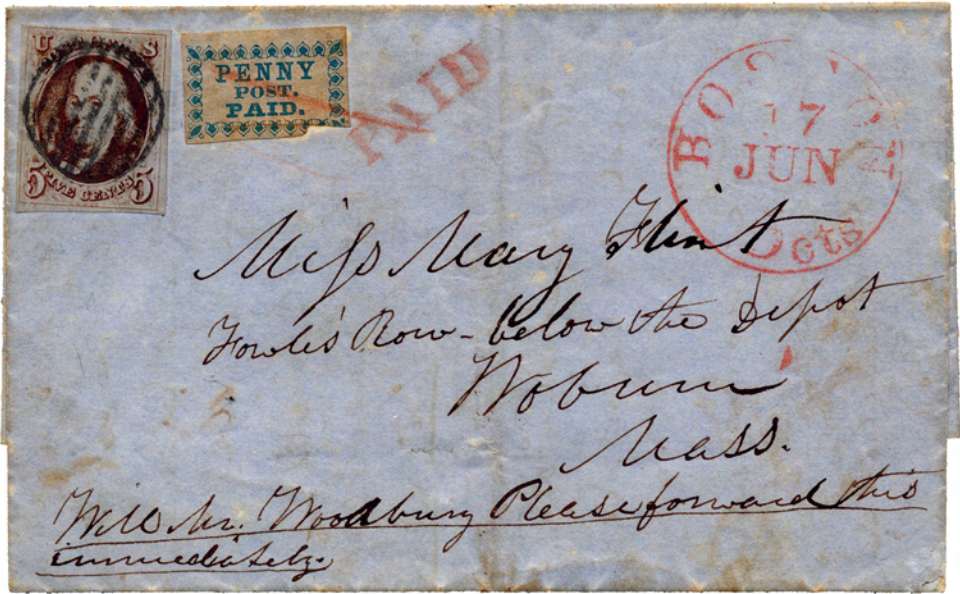 U S
FIVE CENTS
5 5
PENNY
POST.
PAID.
PAID
BOSTON
17
JUN
cts
Miss Mary Flint
Fowle's Row - below the Depot
Woburn
Mass.
Will Mr. Woodbury Please forward this
immediately.